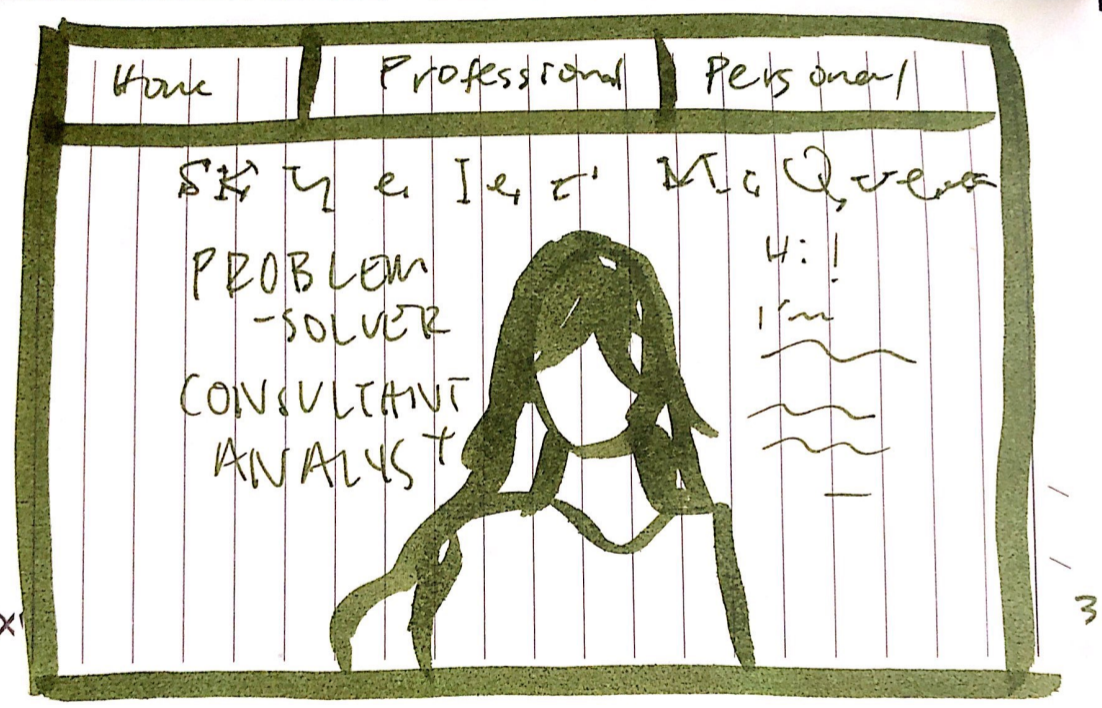 Home Professional Personal
SKyeler McQueen
PROBLEM
-SOLVER
CONSULTANT
ANALYST
Hi!
I'm
3